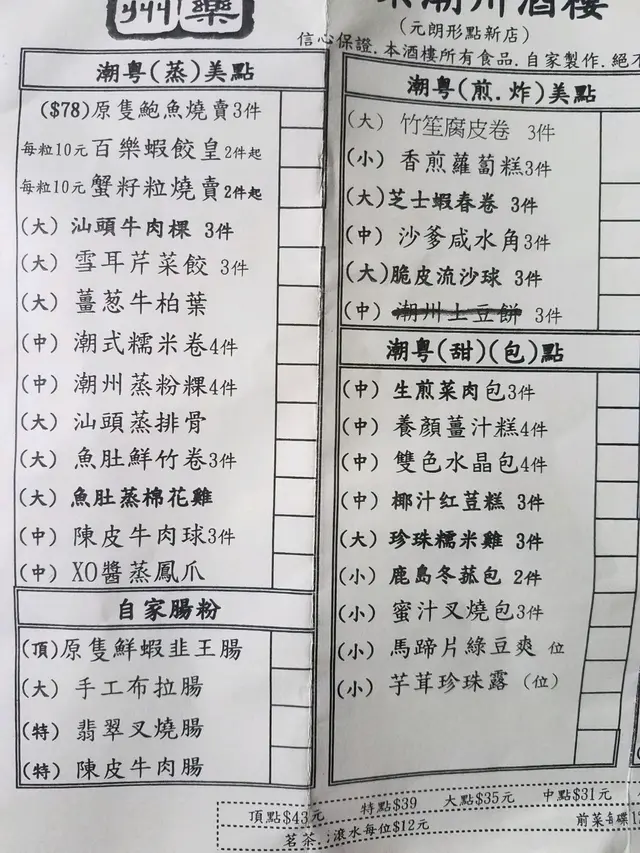 樂
潮州酒樓
(元朗形點新店)
信心保證.本酒樓所有食品.自家製作.絕不
潮粵(蒸)美點
($78)原隻鮑魚燒賣3件
每粒10元百樂蝦餃皇2件起
每粒10元蟹籽粒燒賣2件起
(大) 汕頭牛肉粿 3件
(大) 雪耳芹菜餃 3件
(大) 薑葱牛柏葉
(中) 潮式糯米卷4件
(中) 潮州蒸粉粿4件
(大) 汕頭蒸排骨
(大) 魚肚鮮竹卷3件
(大) 魚肚蒸棉花雞
(中) 陳皮牛肉球3件
(中) XO醬蒸鳳爪
自家腸粉
(頂)原隻鮮蝦韭王腸
(大) 手工布拉腸
(特) 翡翠叉燒腸
(特) 陳皮牛肉腸
潮粵(煎.炸)美點
(大) 竹笙腐皮卷 3件
(小) 香煎蘿蔔糕3件
(大)芝士蝦春卷 3件
(中) 沙爹咸水角3件
(大)脆皮流沙球 3件
(中) 潮州土豆餅 3件
潮粵(甜)(包)點
(中) 生煎菜肉包3件
(中) 養顏薑汁糕4件
(中) 雙色水晶包4件
(中) 椰汁红荳糕 3件
(大) 珍珠糯米雞 3件
(小) 鹿島冬菰包 2件
(小) 蜜汁叉燒包3件
(小) 馬蹄片綠豆爽 位
(小) 芋茸珍珠露 (位)
頂點$43元 特點$39 大點$35元 中點$31元
茗茶.;滾水每位$12元 前菜每碟